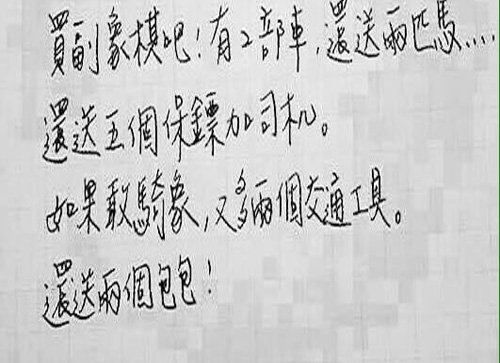 買副象棋吧!有2部車,還送兩匹馬....
還送五個保鏢加司机。
如果敢騎象,又多兩個交通工具。
還送兩個包包!